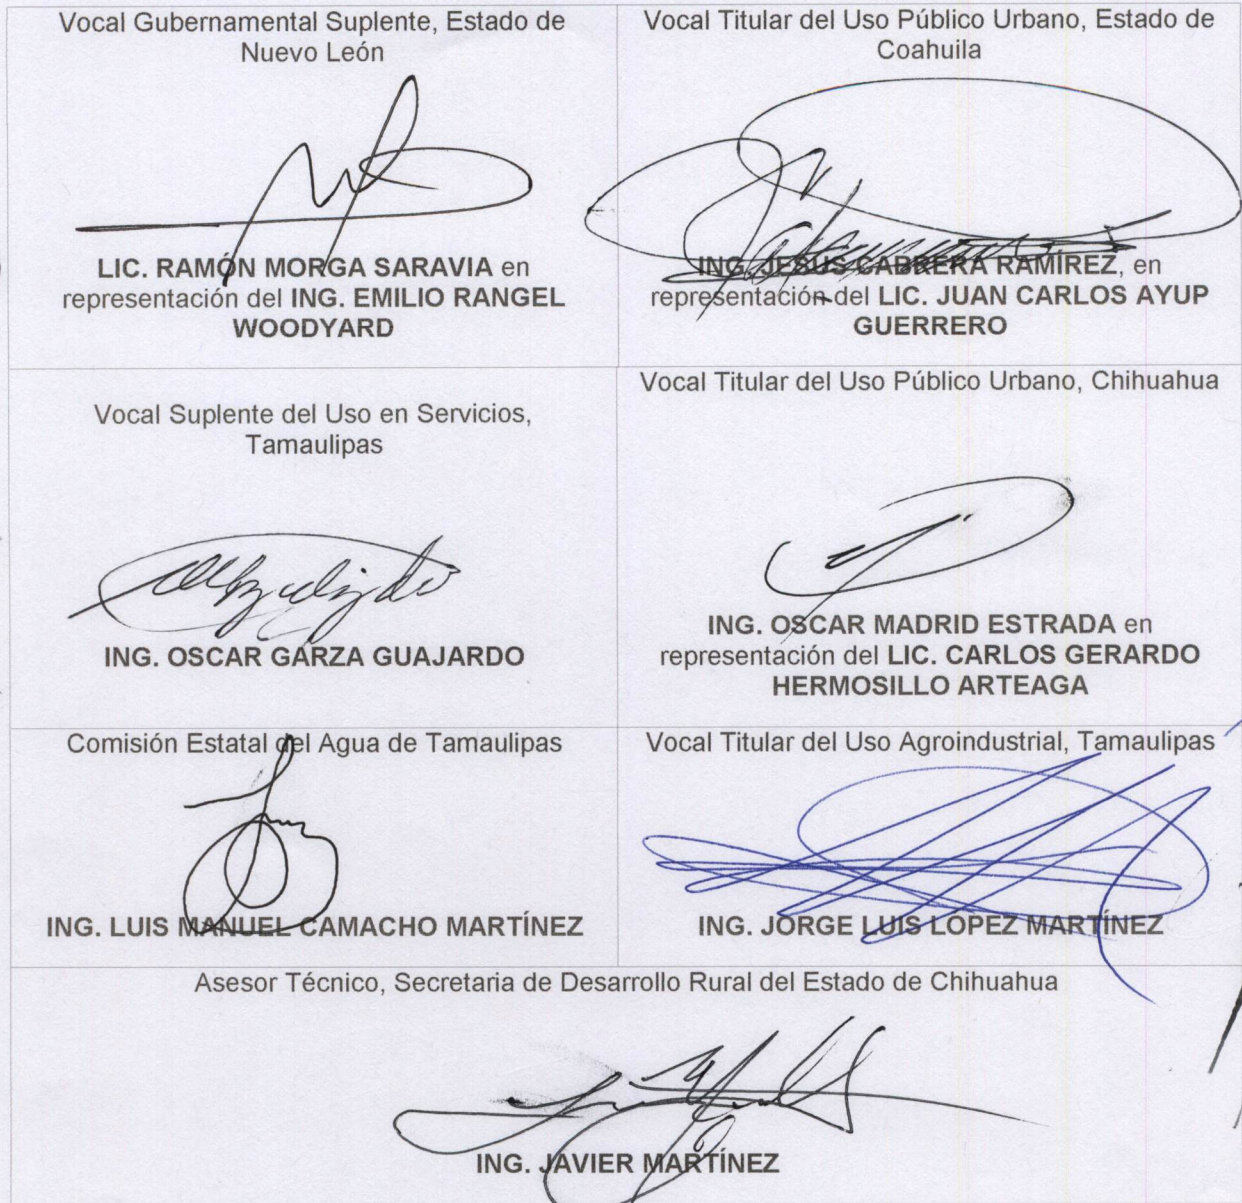 Vocal Gubernamental Suplente, Estado de
Nuevo León
LIC. RAMÓN MORGA SARAVIA en
representación del ING. EMILIO RANGEL
WOODYARD
Vocal Titular del Uso Público Urbano, Estado de
Coahuila
ING. JESUS CABRERA RAMIREZ, en
representación del LIC. JUAN CARLOS AYUP
GUERRERO
Vocal Suplente del Uso en Servicios,
Tamaulipas
ING. OSCAR GARZA GUAJARDO
Vocal Titular del Uso Público Urbano, Chihuahua
ING. OSCAR MADRID ESTRADA en
representación del LIC. CARLOS GERARDO
HERMOSILLO ARTEAGA
Comisión Estatal del Agua de Tamaulipas
ING. LUIS MANUEL CAMACHO MARTÍNEZ
Vocal Titular del Uso Agroindustrial, Tamaulipas
ING. JORGE LUIS LÓPEZ MARTÍNEZ
Asesor Técnico, Secretaria de Desarrollo Rural del Estado de Chihuahua
ING. JAVIER MARTÍNEZ